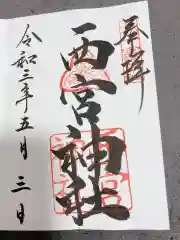 奉拝
西宮神社
令和三年五月三日